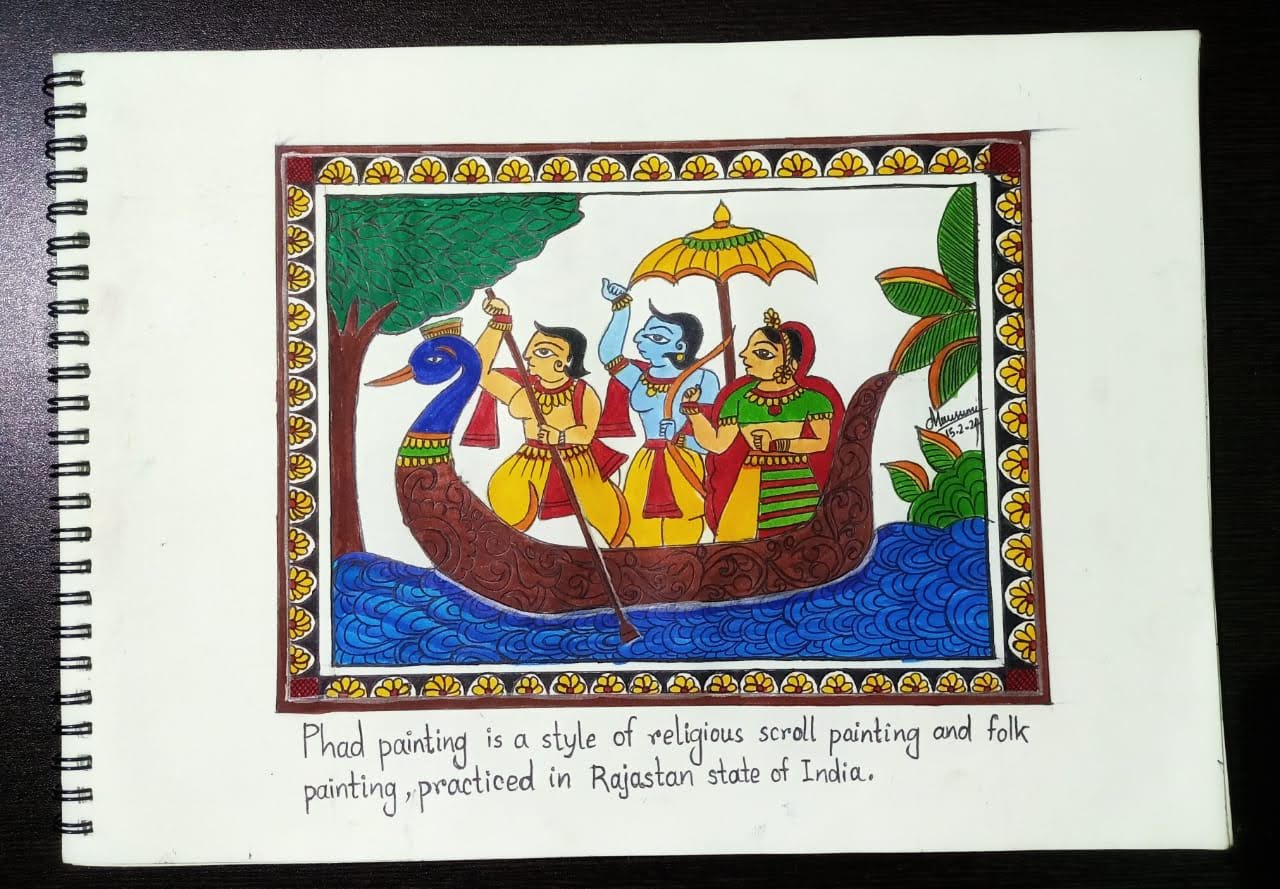 Mausumi
15-2-24
Phad painting is a style of religious scroll painting and folk
painting, practiced in Rajastan state of India.